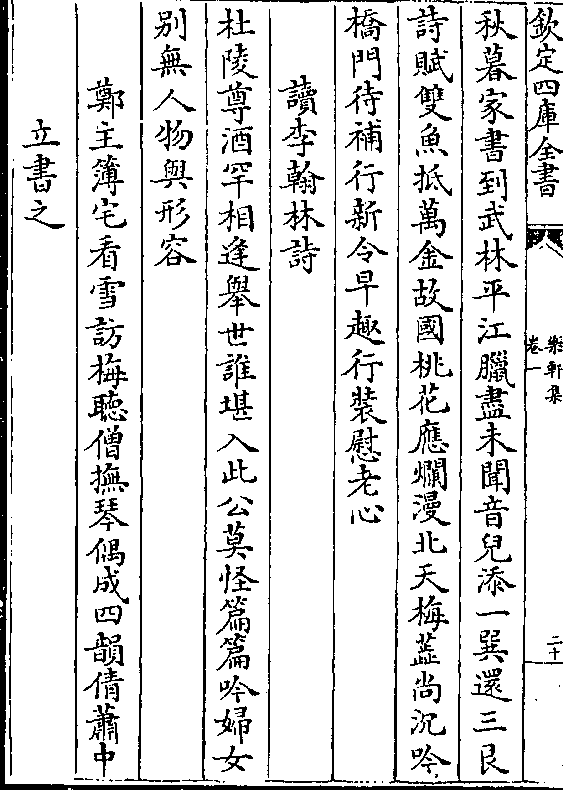 欽定四庫全書
樂軒集
卷一
二十
秋暮家書到武林平江臘盡未聞音兒添一巽還三艮
詩賦雙魚抵萬金故國桃花應爛漫北天梅蕋尚沉吟
橋門待補行新令早趣行裝慰老心
讀李翰林詩
杜陵尊酒罕相逢舉世誰堪入此公莫怪篇篇吟婦女
别無人物與形容
鄭主簿宅看雪訪梅聽僧撫琴偶成四韻倩蕭中
立書之